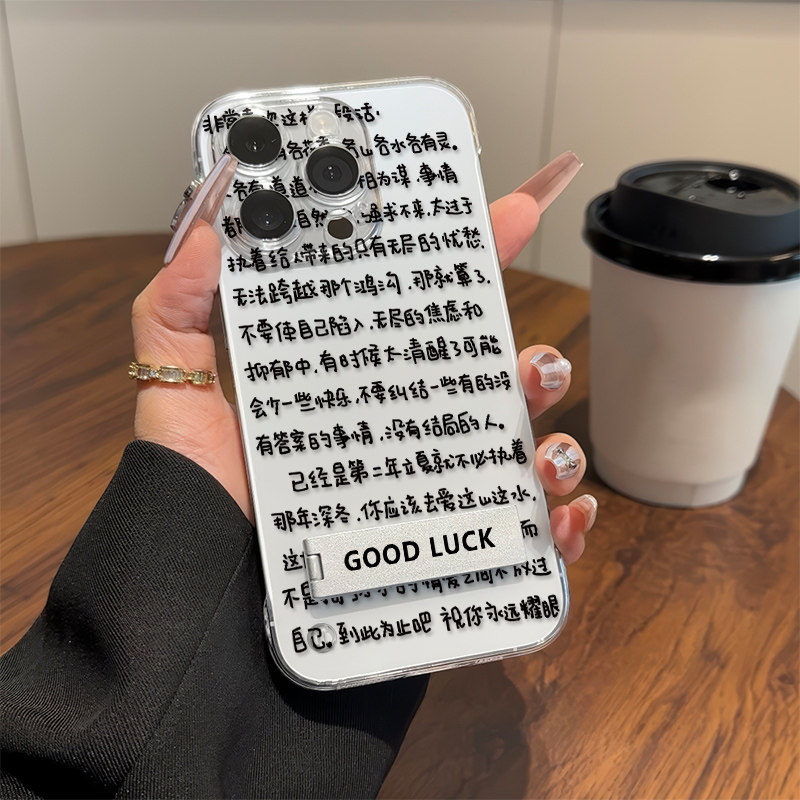 非常喜欢这样一段话.
各花香 各山各水各有灵。
各有道 道 相为谋.事情
都 自然 强求不来.太过于
执着给人带来的只有无尽的忧愁.
无法跨越那个鸿沟.那就算了.
不要使自己陷入.无尽的焦虑和
抑郁中.有时候太清醒了可能
会少一些快乐.不要纠结一些有的没
有答案的事情.没有结局的人。
已经是第二年立夏就不必执着
那年深冬.你应该去爱这山这水.
这 而
GOOD LUCK
不是 的情爱之间不放过
自己。到此为止吧 祝你永远耀眼